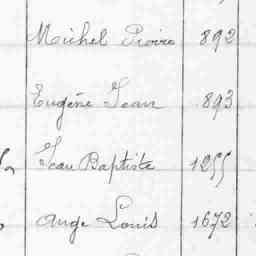 Michel Pierre 892
Eugène Jean 893
Jean Baptiste 1255
Ange Louis 1672